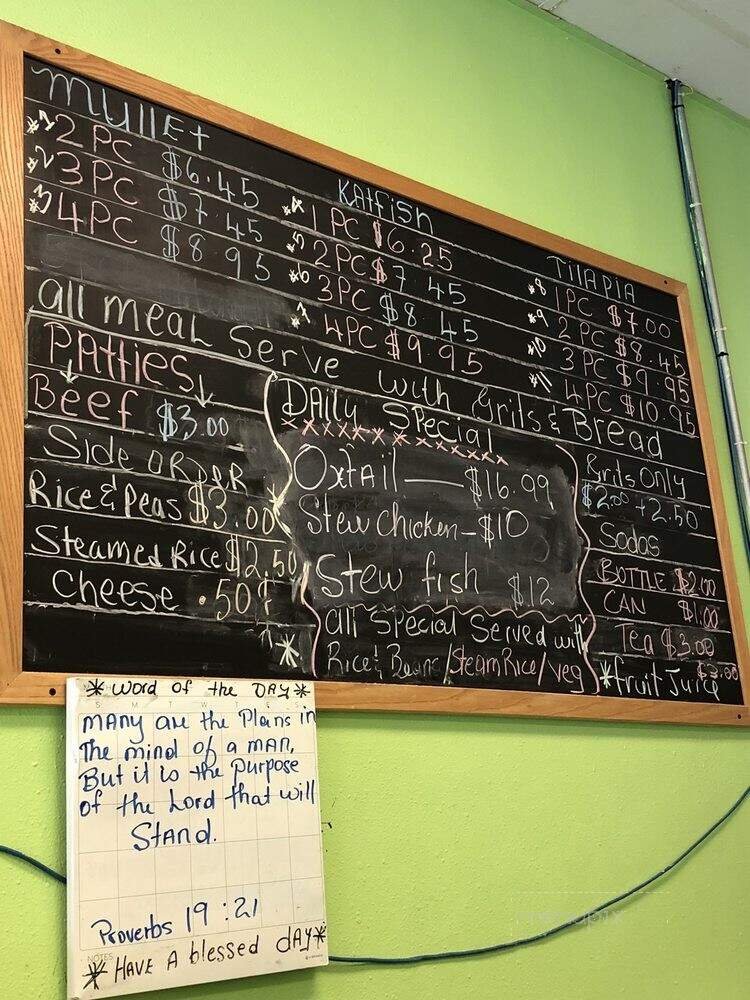 Mullet
*1 2 PC $6.45
*2 3PC $7.45
*3 4PC $8.95
Katfish
*4 1 PC $6.25
*5 2PC $7.45
*6 3PC $8.45
*7 4PC $9.95
Tilapia
*8 1PC $7.00
*9 2 PC $8.45
*10 3 PC $9.95
*11 4PC $10.95
all meal serve with Grits & Bread
Patties
Beef $3.00
Side order
Rice & Peas $3.00
Steamed Rice $2.50
Cheese .50¢
Daily Special
Oxtail — $16.99
Stew chicken - $10
Stew fish $12
all special served with
Rice & Beans/Steam Rice/veg
Grits Only
$2.00 + 2.50
Sodas
BOTTLE $2.00
CAN $1.00
Tea $3.00
*fruit Juice $3.00
* Word of the DAY *
Many are the Plans in
The mind of a man,
But it is the purpose
of the Lord that will
Stand.
Proverbs 19:21
NOTES
* HAVE A blessed dAY *